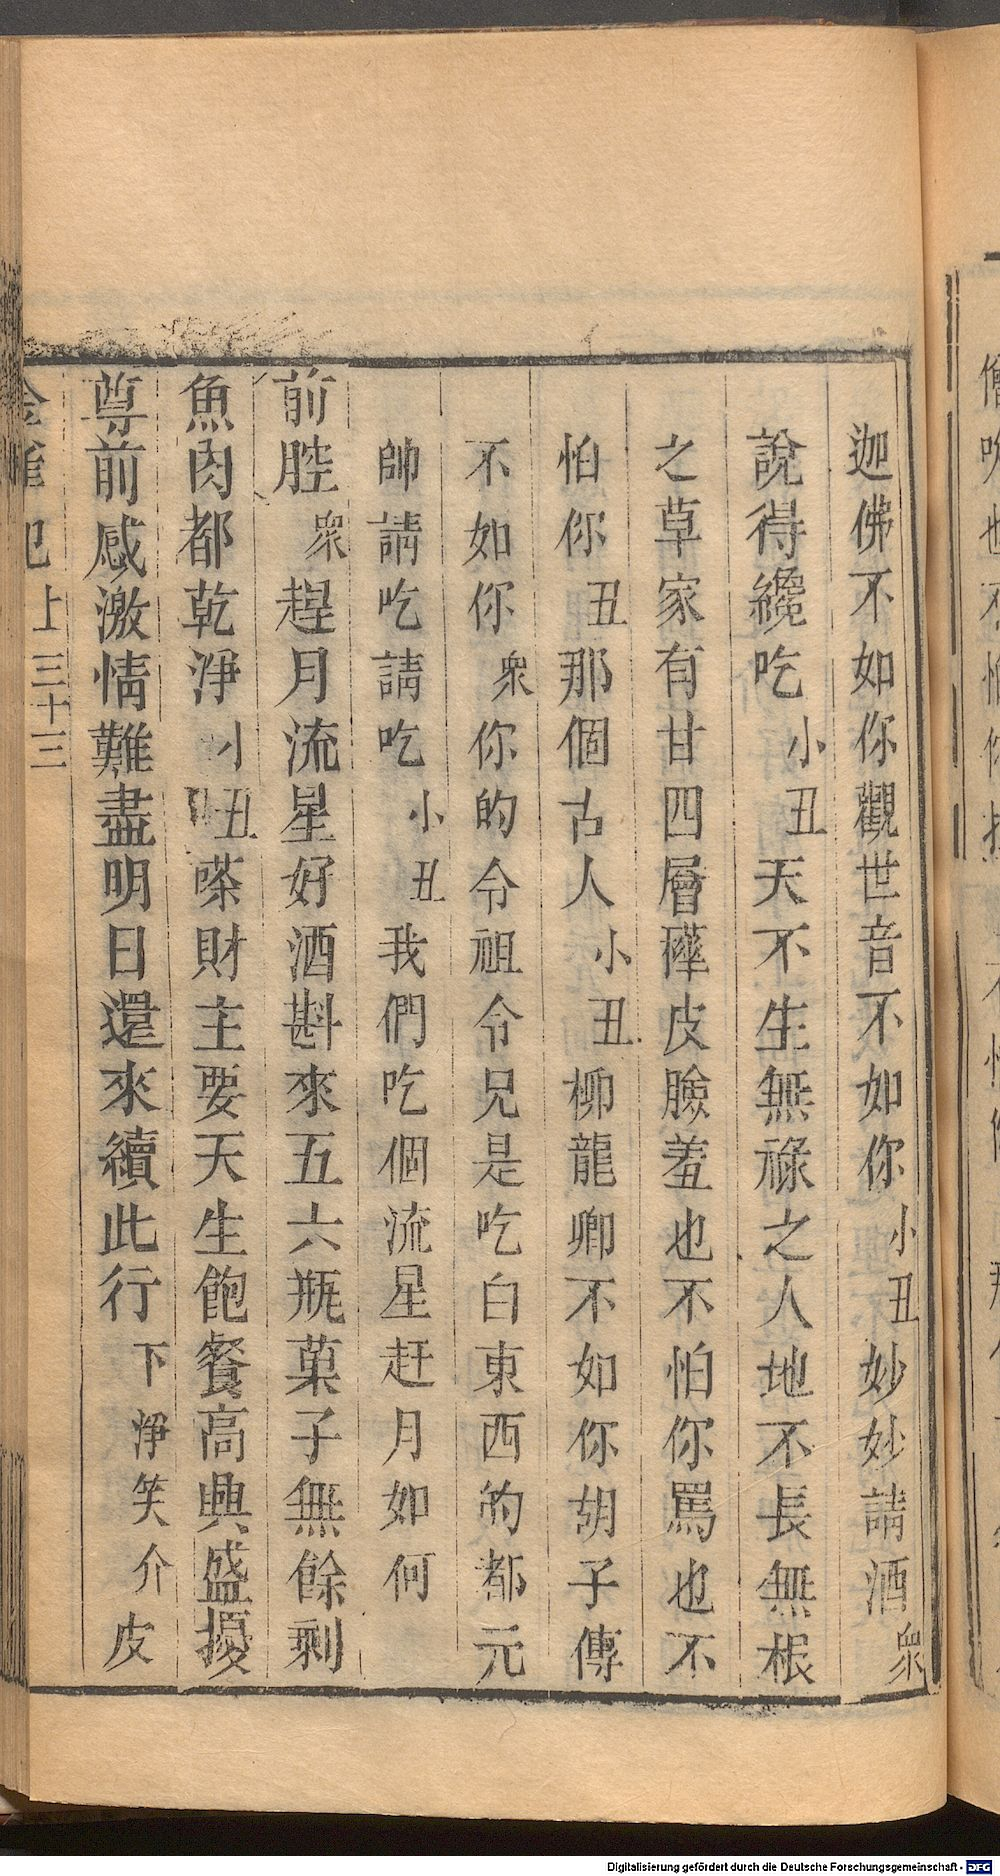 迦佛不如你觀世音不如你小丑妙妙請酒衆
說得纔吃小丑天不生無祿之人地不長無根
之草家有甘四層皮臉羞也不怕你罵也不
怕你丑那個古人小丑柳龍卿不如你胡子傳
不如你衆你的令祖令兄是吃白東西的都元
帥請吃請吃小丑我們吃個流星赶月如何
前腔衆趕月流星好酒斟來五六瓶菓子無餘剩
魚肉都乾淨小丑嗏財主要天生飽餐高興盛擾
尊前感激情難盡明日還來續此行下淨笑介皮
金雀記上三十三
Digitalisierung gefördert durch die Deutsche Forschungsgemeinschaft - DFG